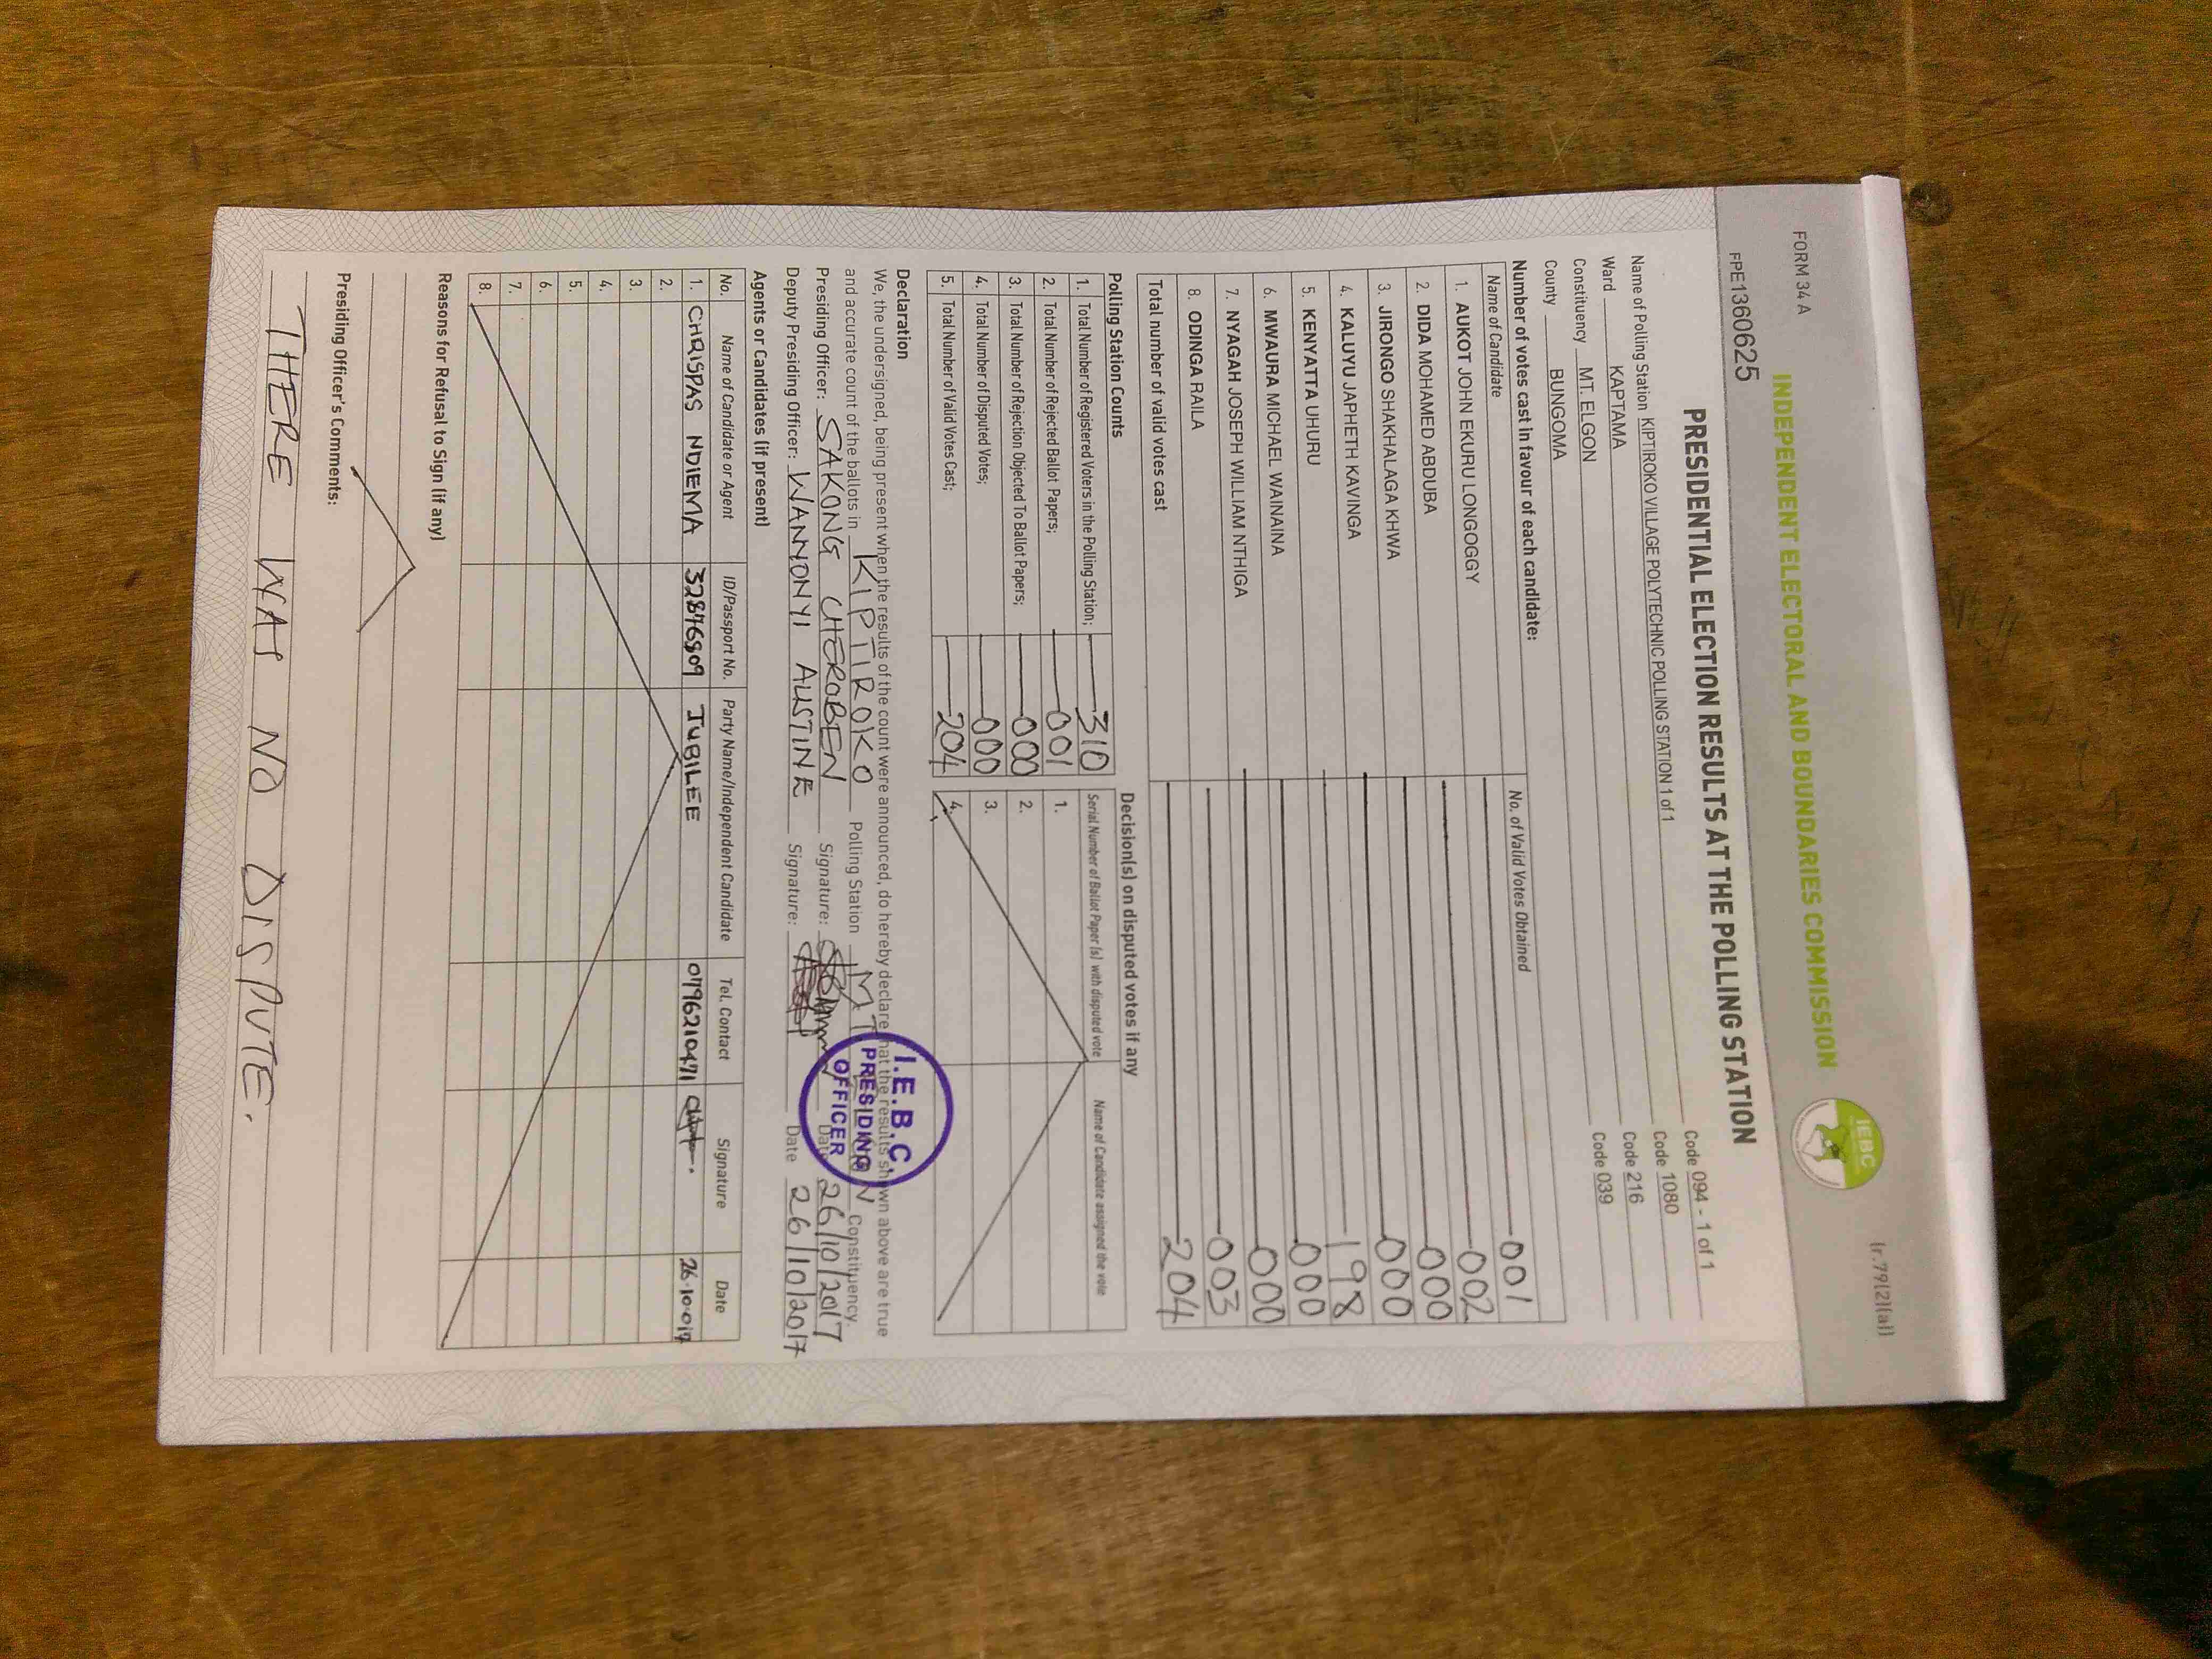 FORM 34 A
(r.79(2)(a))
INDEPENDENT ELECTORAL AND BOUNDARIES COMMISSION
IEBC
FPE1360625
PRESIDENTIAL ELECTION RESULTS AT THE POLLING STATION
Name of Polling Station KIPTIROKO VILLAGE POLYTECHNIC POLLING STATION 1 of 1 Code 094 - 1 of 1
Ward KAPTAMA Code 1080
Constituency MT. ELGON Code 216
County BUNGOMA Code 039
Number of votes cast in favour of each candidate:
Name of Candidate No. of Valid Votes Obtained
1. AUKOT JOHN EKURU LONGOGGY 001
2. DIDA MOHAMED ABDUBA 002
3. JIRONGO SHAKHALAGA KHWA 000
4. KALUYU JAPHETH KAVINGA 000
5. KENYATTA UHURU 198
6. MWAURA MICHAEL WAINAINA 000
7. NYAGAH JOSEPH WILLIAM NTHIGA 000
8. ODINGA RAILA 003
Total number of valid votes cast 204
Polling Station Counts
1. Total Number of Registered Voters in the Polling Station; 310
2. Total Number of Rejected Ballot Papers; 001
3. Total Number of Rejection Objected To Ballot Papers; 000
4. Total Number of Disputed Votes; 000
5. Total Number of Valid Votes Cast; 204
Decision(s) on disputed votes if any
Serial Number of Ballot Paper (s) with disputed vote Name of Candidate assigned the vote
1.
2.
3.
4.
Declaration
We, the undersigned, being present when the results of the count were announced, do hereby declare that the results shown above are true
and accurate count of the ballots in KIPTIROKO Polling Station MT Constituency.
Presiding Officer: SAKONG CHEROBEN Signature: Date 26/10/2017
Deputy Presiding Officer: WANYONYI AUSTINE Signature: Date 26/10/2017
I.E.B.C
PRESIDING
OFFICER
Agents or Candidates (if present)
No. Name of Candidate or Agent ID/Passport No. Party Name/Independent Candidate Tel. Contact Signature Date
1. CHRISPAS NDIEMA JUBILEE 0796210471
2.
3.
4.
5.
6.
7.
8.
Reasons for Refusal to Sign (if any)
Presiding Officer's Comments:
THERE WAS NO DISPUTE.